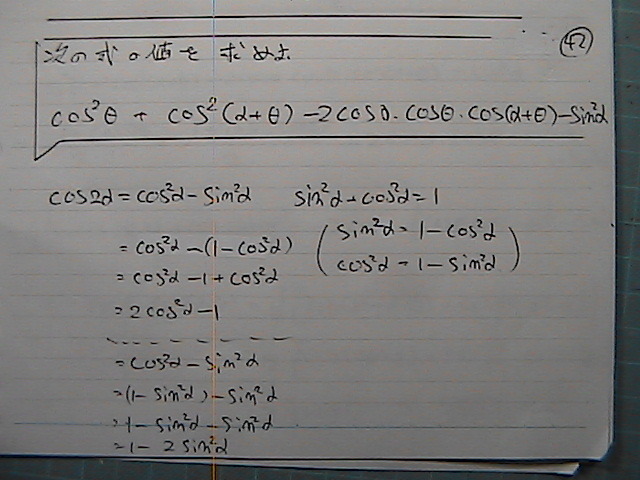 42
次の式の値を求めよ
cos²θ + cos²(α+θ) -2cosα・cosθ・cos(α+θ)-sin²α
cos2α = cos²α - sin²α sin²α + cos²α = 1
= cos²α - (1 - cos²α) (sin²α = 1 - cos²α
= cos²α - 1 + cos²α cos²α = 1 - sin²α)
= 2cos²α - 1
= cos²α - sin²α
= (1 - sin²α) - sin²α
= 1 - sin²α - sin²α
= 1 - 2sin²α